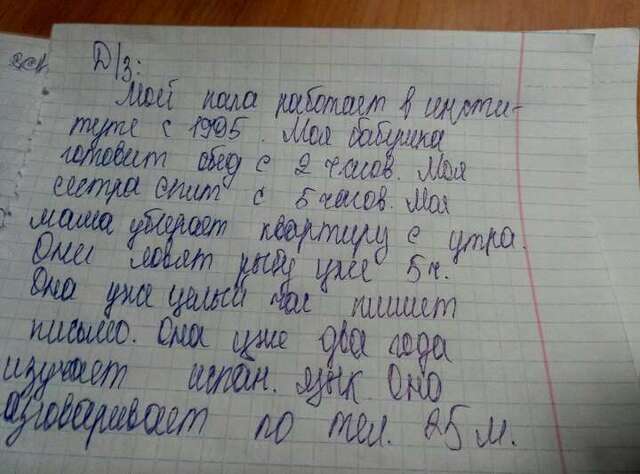 Д/З:
Мой папа работает в инсти-
туте с 1995. Моя бабушка
готовит обед с 2 часов. Моя
сестра спит с 5 часов. Моя
мама убирает квартиру с утра.
Они ловят рыбу уже 5 ч.
Она уже целый час пишет
письмо. Она уже два года
изучает испан. язык. Она
азговаривает по тел. 25 м.